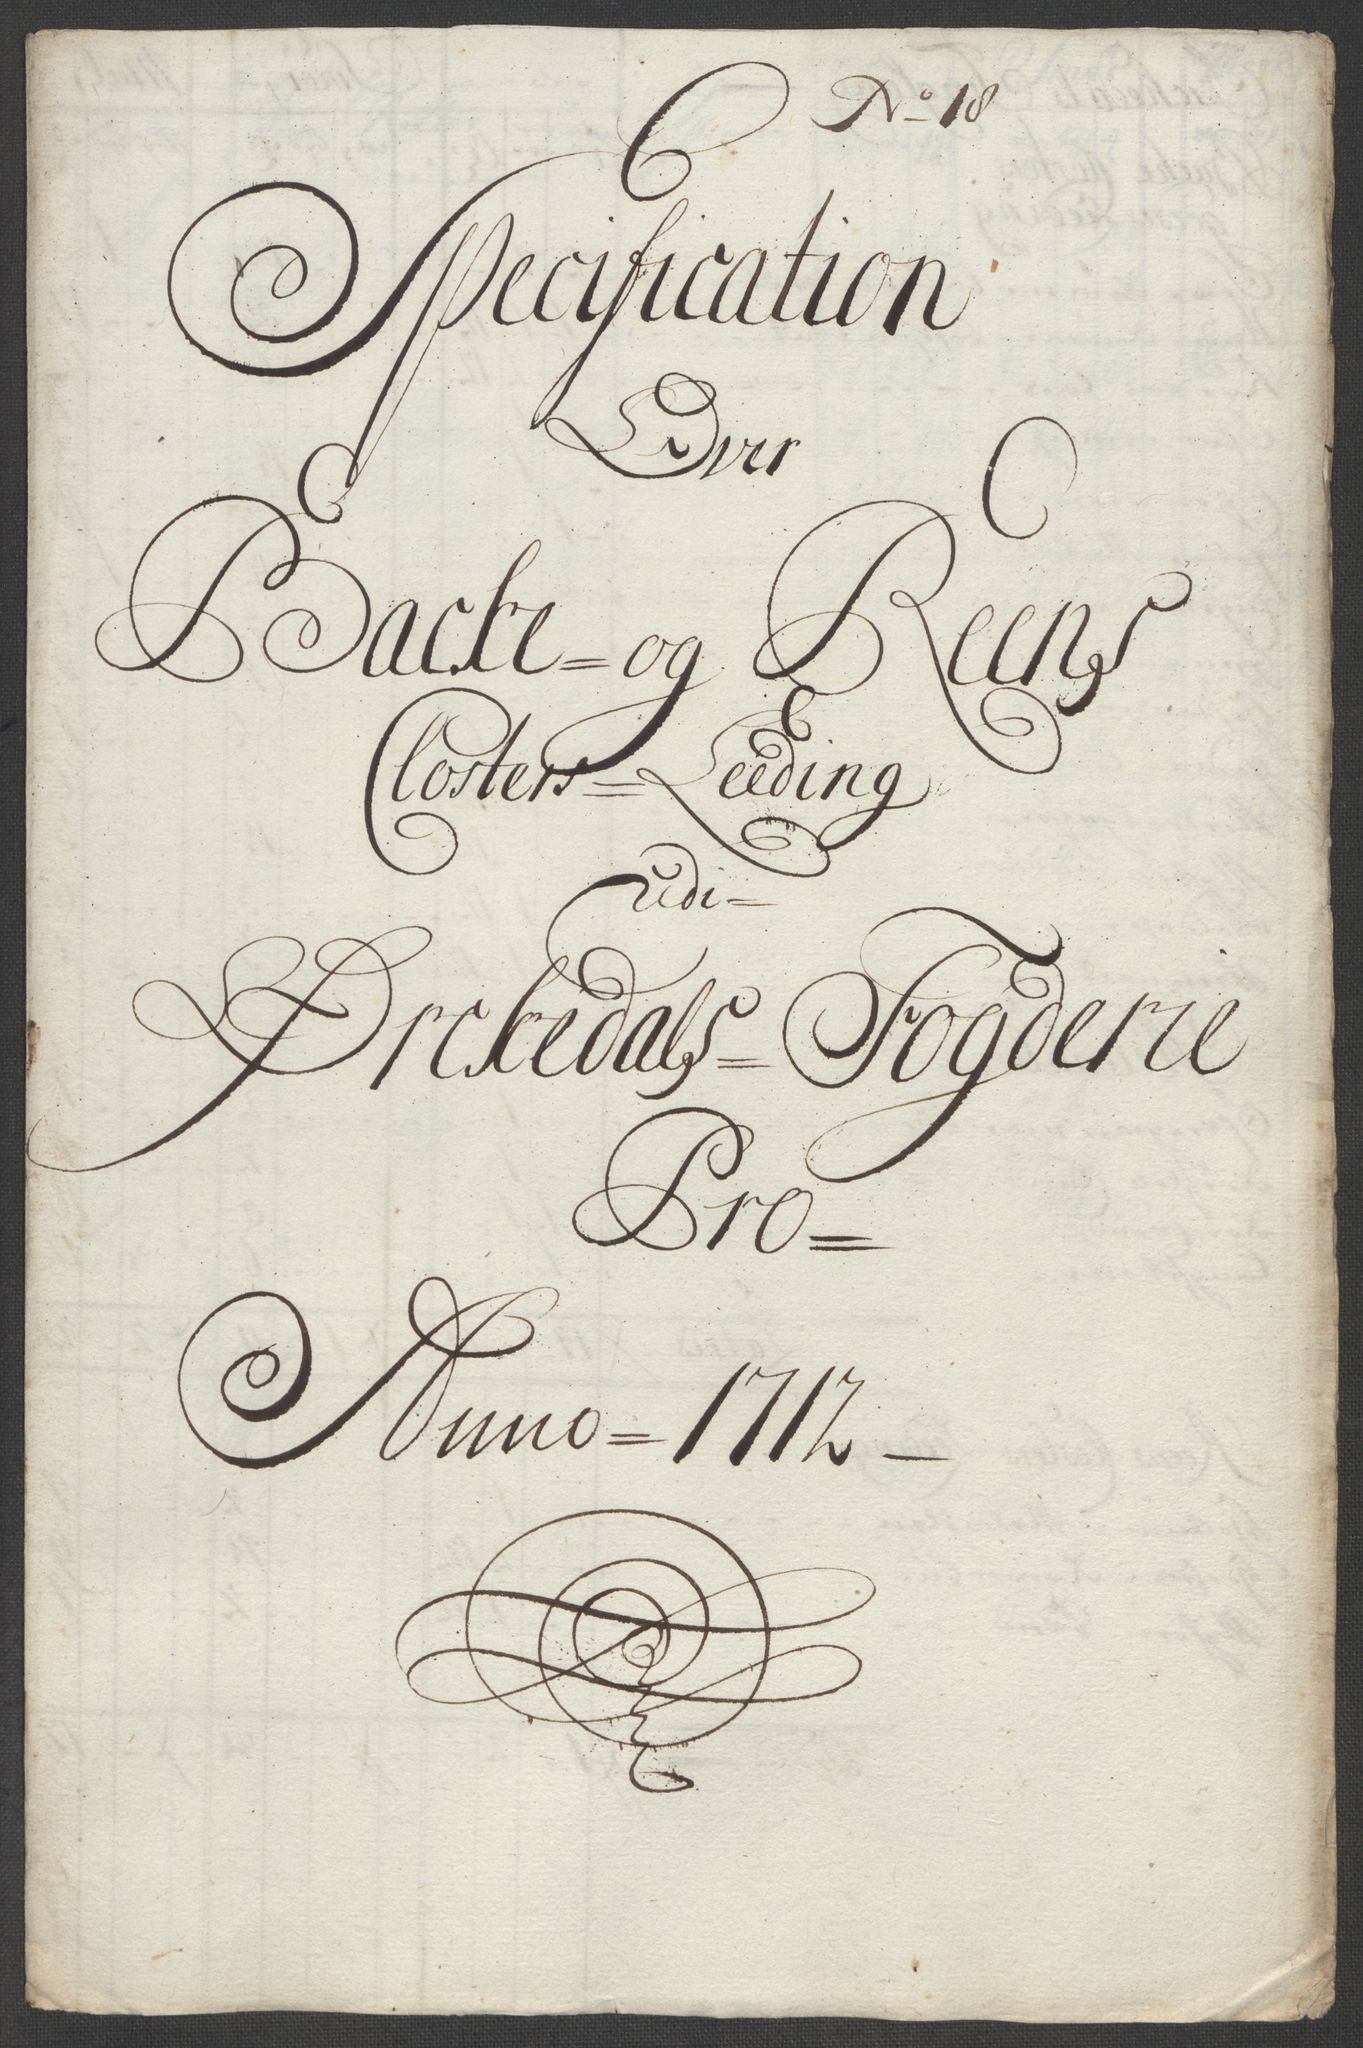 No 18
Specification
Over
Backe- og Reens
Closters- Leeding
udi-
Ørckedals- Fogderie
Pro-
Anno- 1712-